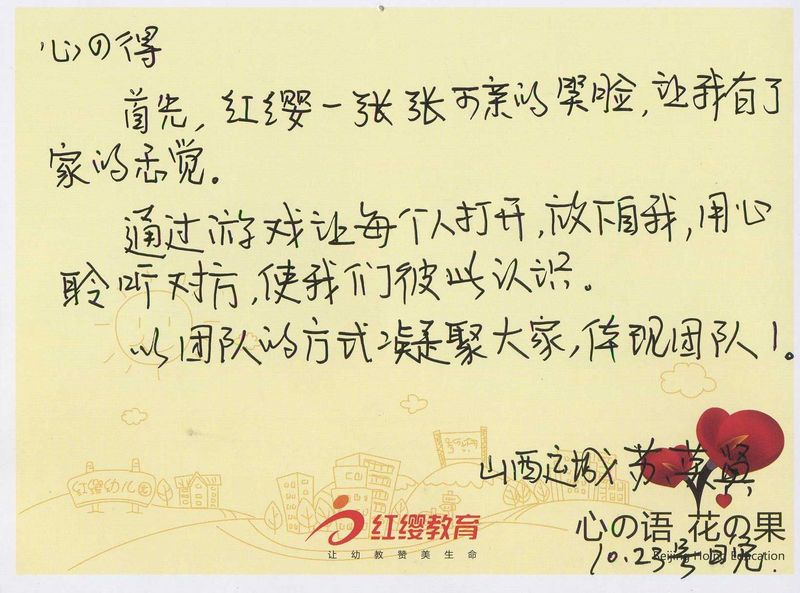 心の得
首先，红缨一张张可亲的笑脸，让我有了
家的感觉。
通过游戏让每个人打开，放下自我，用心
聆听对方，使我们彼此认识。
以团队的方式凝聚大家，体现团队！。
山西运城 苏荣贤
红缨幼儿园
红缨教育
让幼教赞美生命
心の语 花の果
Beijing Hoing Education
10.23号日